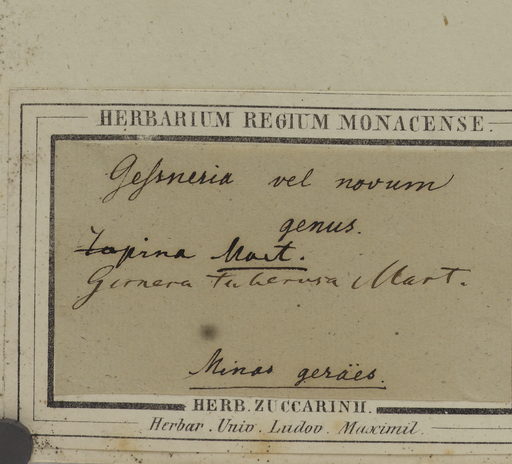 HERBARIUM REGIUM MONACENSE.
Gessneria vel novum
genus.
Tapina Mart.
Gesnera tuberosa Mart.
Minas geräes.
HERB. ZUCCARINII.
Herbar. Univ. Ludov. Maximil.